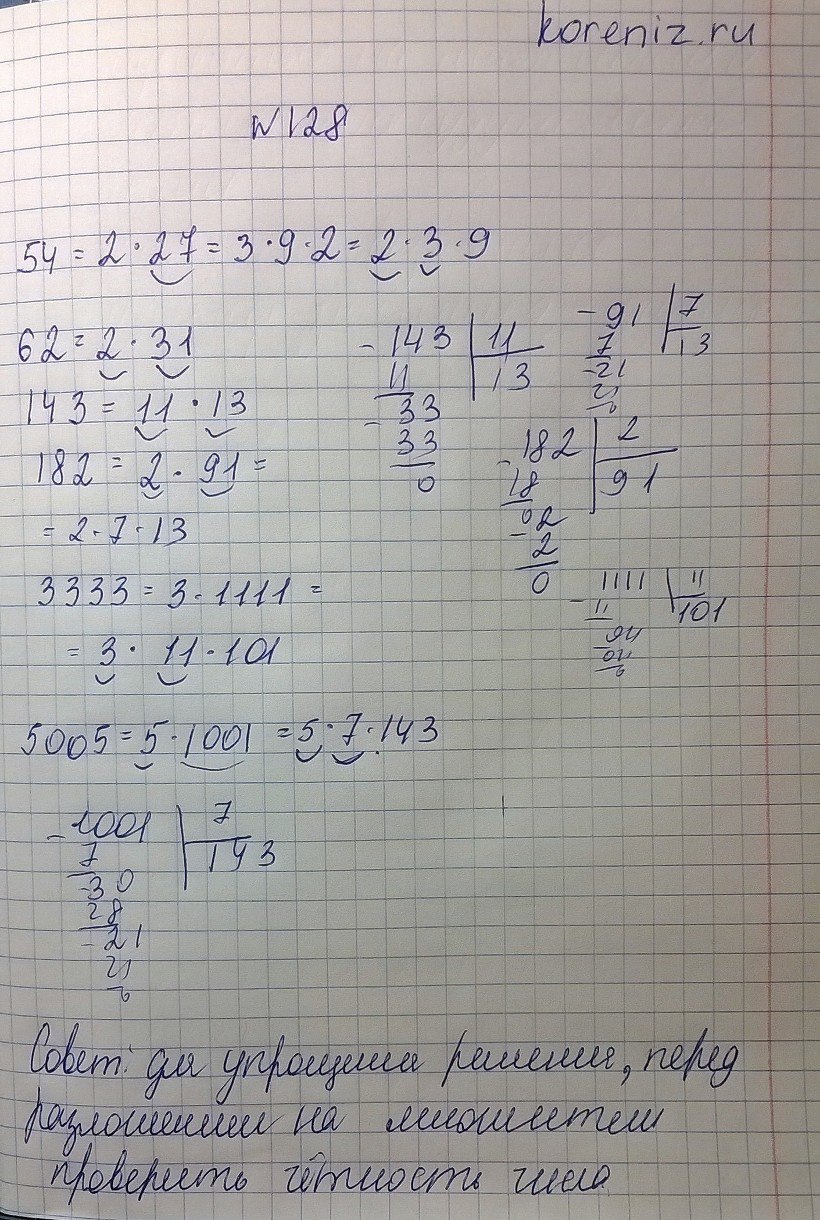 koreniz.ru
№128
54 = 2 · 27 = 3 · 9 · 2 = 2 · 3 · 9
62 = 2 · 31
143 = 11 · 13
182 = 2 · 91 =
= 2 · 7 · 13
3333 = 3 · 1111 =
= 3 · 11 · 101
- 143 | 11
11 | 13
- 33
33
0
- 91 | 7
7 | 13
- 21
21
0
- 182 | 2
18 | 91
02
- 2
0
- 1111 | 11
11 | 101
011
011
0
5005 = 5 · 1001 = 5 · 7 · 143
- 1001 | 7
7 | 143
- 30
28
- 21
21
0
Совет: для упрощения решения, перед
разложением на множители
проверить чётность числа